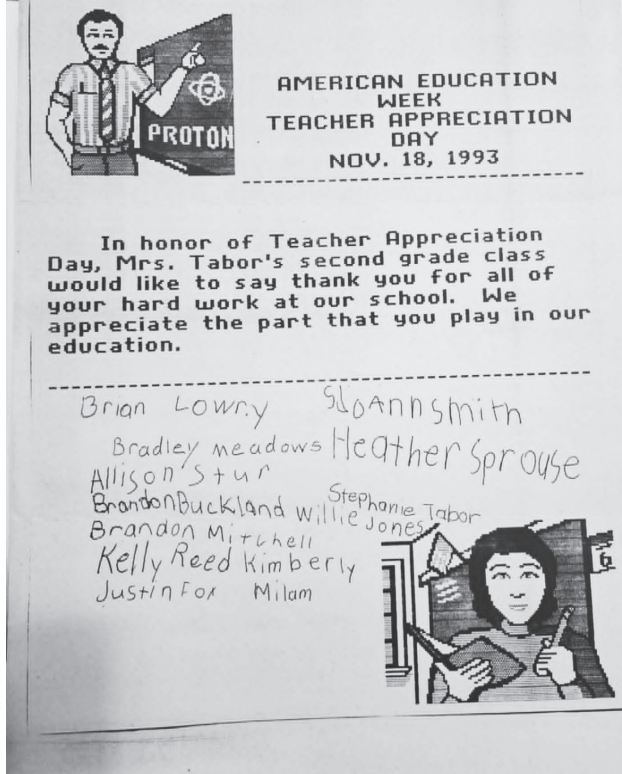 PROTON
AMERICAN EDUCATION
WEEK
TEACHER APPRECIATION
DAY
NOV. 18, 1993
In honor of Teacher Appreciation
Day, Mrs. Tabor's second grade class
would like to say thank you for all of
your hard work at our school. We
appreciate the part that you play in our
education.
Brian Lowry
JoAnn Smith
Bradley meadows
Heather Sprouse
Allison Stur
Stephanie Tabor
Brandon Buckland
Willie Jones
Brandon Mitchell
Kelly Reed
Kimberly
Milam
Justin Fox
6